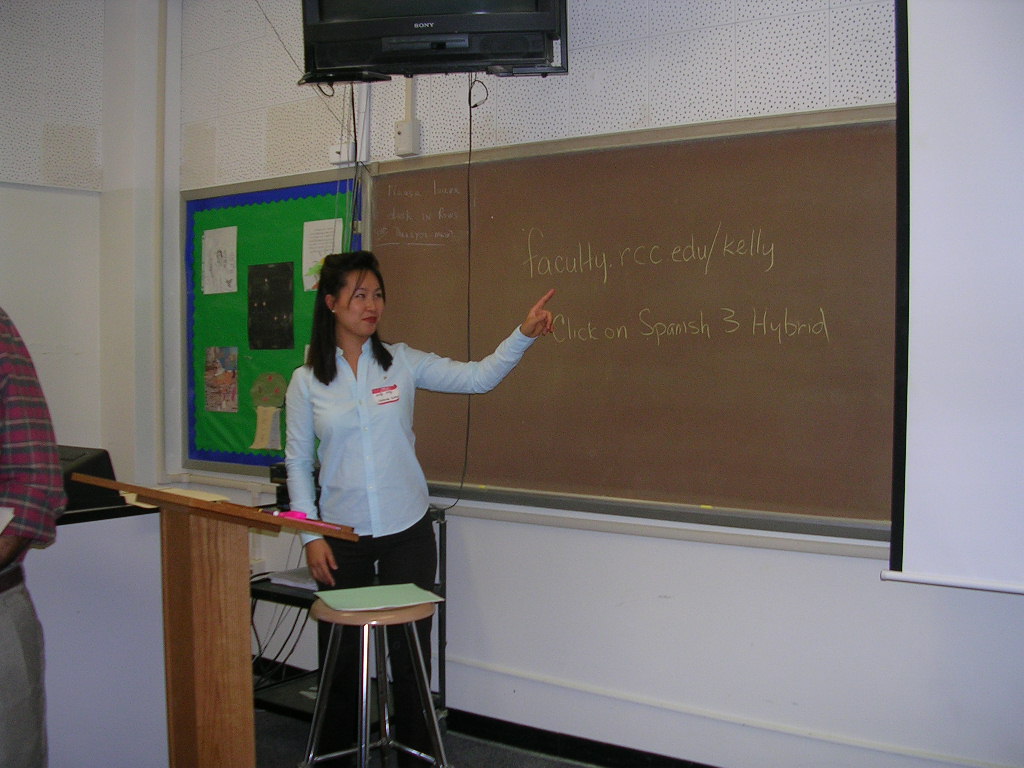 SONY
Please leave
desk in Rows
faculty.rcc.edu/kelly
Click on Spanish 3 Hybrid